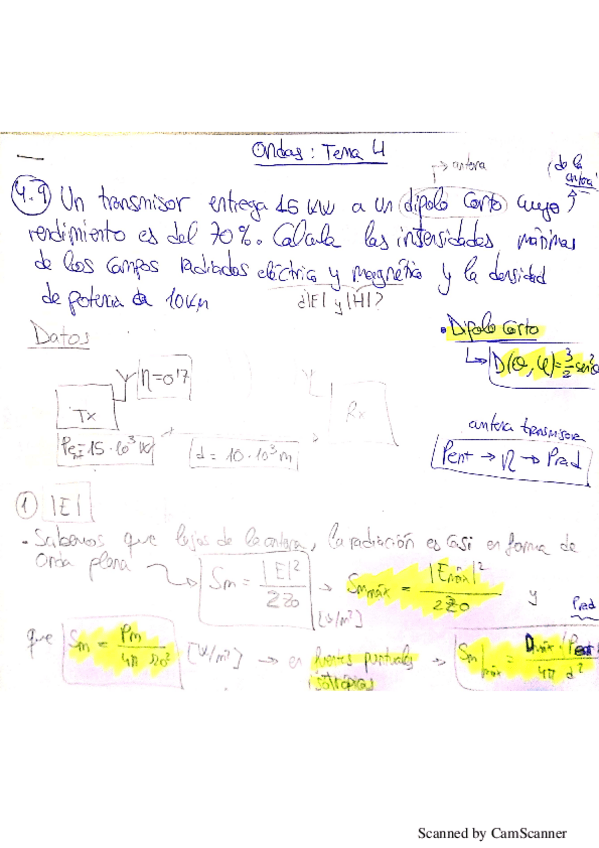 Ondas: Tema 4
→ antena
(de la antena)
4.9 Un transmisor entrega 15 kW a un dipolo corto cuyo
rendimiento es del 70%. Calcula las intensidades máximas
de los campos radiados eléctrico y magnético y la densidad
de potencia a 10km
¿|E| y |H|?
Datos
• Dipolo corto
↳ D(θ,φ)=3/2 sen²θ
η=0'7
Tx
Rx
Pent=15·10³W
d=10·10³m
antena transmisora
Pent → η → Prad
① |E|
• Sabemos que lejos de la antena, la radiación es casi en forma de
onda plana → Sm = |E|²/2Z0 → Smmáx = |Emáx|²/2Z0 y
[W/m²]
Prad
que Sm = Pm/4π [W/m²] → en fuentes puntuales isotrópicas → Sm|máx = Dmáx·(Pent/4π d²
Scanned by CamScanner